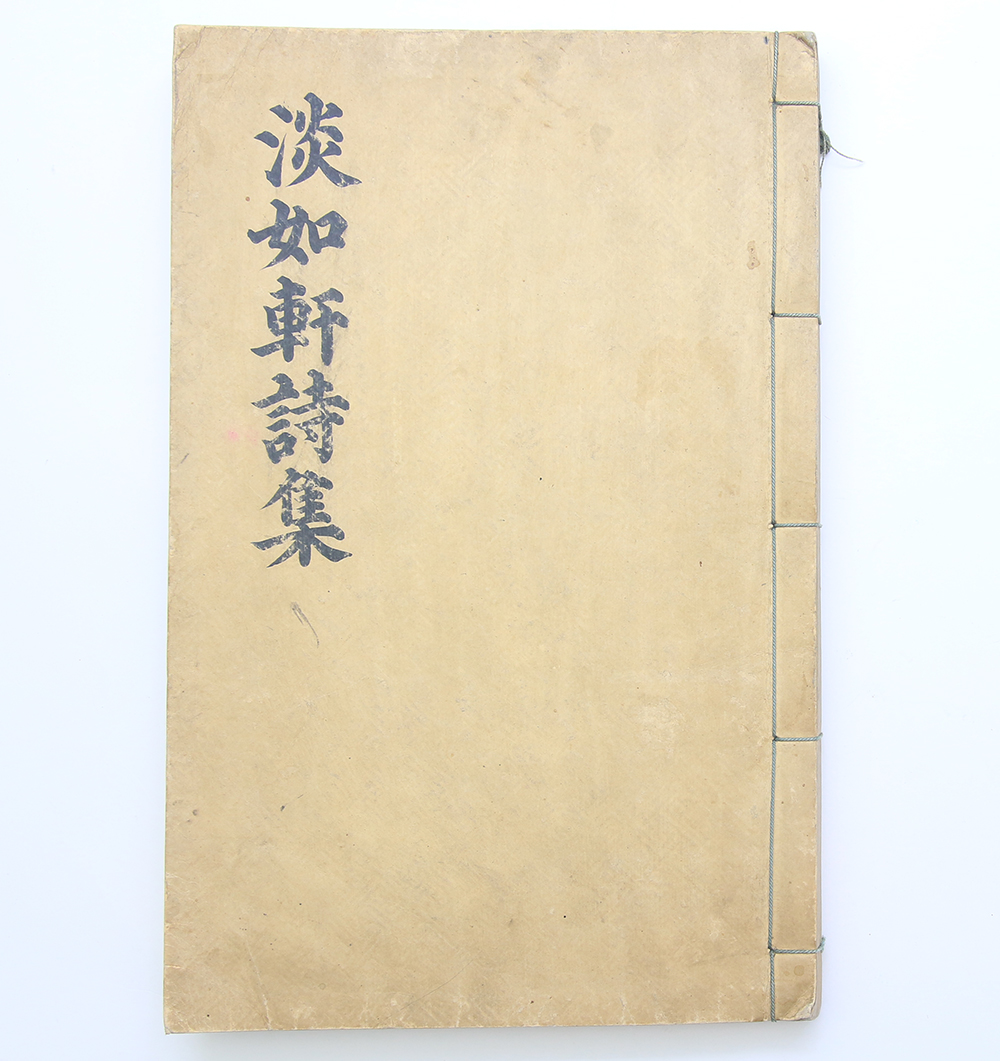 淡如軒詩集